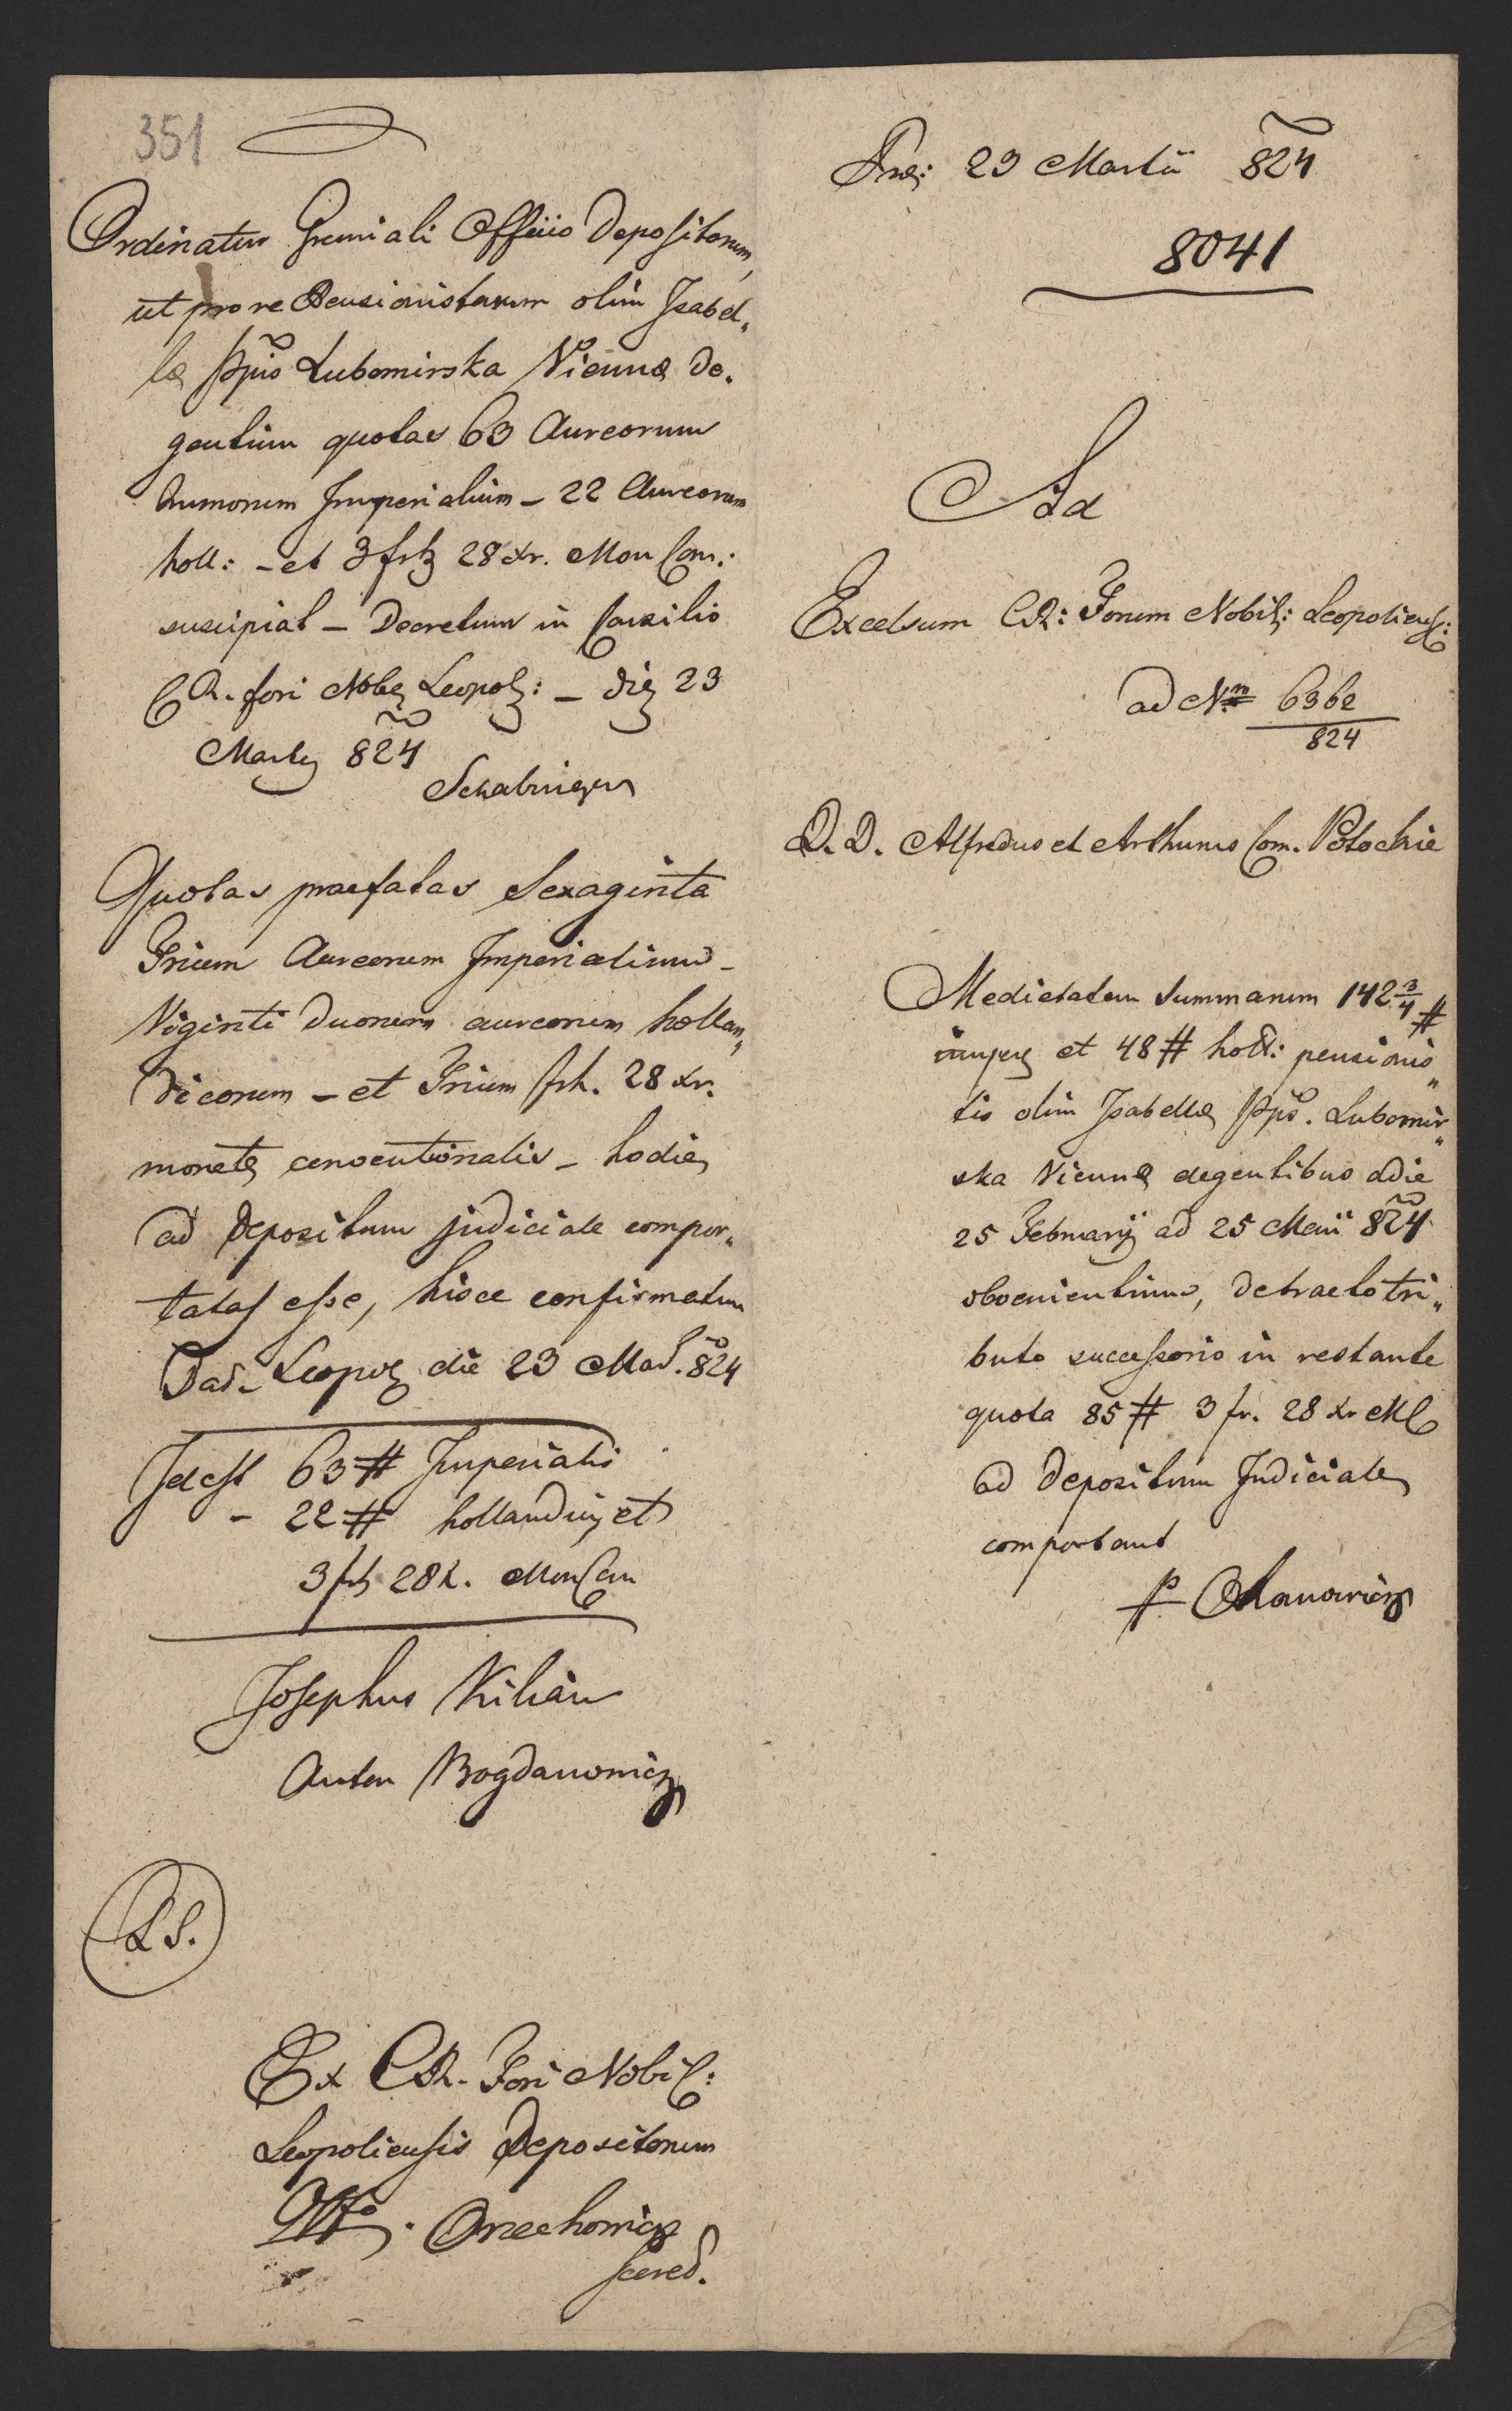 351
Ordinatur Gremiali Officio Depositorum,
ut pro re Pensionistarum olim Isabel„
læ Ppis Lubomirska Viennæ de„
gentium quotas 63 Aureorum
Numorum Imperialium – 22 Aureorum
holl: – et 3 frh 28 xr. Mon Con:
suscipiat – Decretum in Consilio
C.R. fori Nob Leopol: – die 23
Martii 824
Quotas praefatas Sexaginta
Trium Aureorum Imperialium –
Viginti Duorum aureorum hollan„
dicorum – et Trium frh. 28 xr.
monetæ conventionalis – hodie
ad Depositum judiciale compor„
tatas esse, hisce confirmatur
Dat. Leopol die 23 Mar. 824
Idest 63 # Imperialis
– 22 # hollandici et
3 frh 28 x. Mon Con
Josephus Kilian
Anton Bogdanowicz
L.S.
Ex C.R. Fori Nobil:
Leopoliensis Depositorum
Offo. Orzechowicz
Præs: 23 Martii 824
8041
Ad
Excelsum C.R: Forum Nobil: Leopoliens:
ad Nrm 6362
824
D.D. Alfredus et Arthurus Com. Potockie
Medietatem Summarum 142 3/4 #
imper et 48 # holl: pensionis„
tis olim Isabellæ Ppis. Lubomir„
ska Viennæ degentibus a die
25 Februarij ad 25 Maii 824
obvenientium, detracto tri„
buto successorio in restante
quota 85 # 3 fr. 28 xr MC
ad Depositum Judiciale
comportant